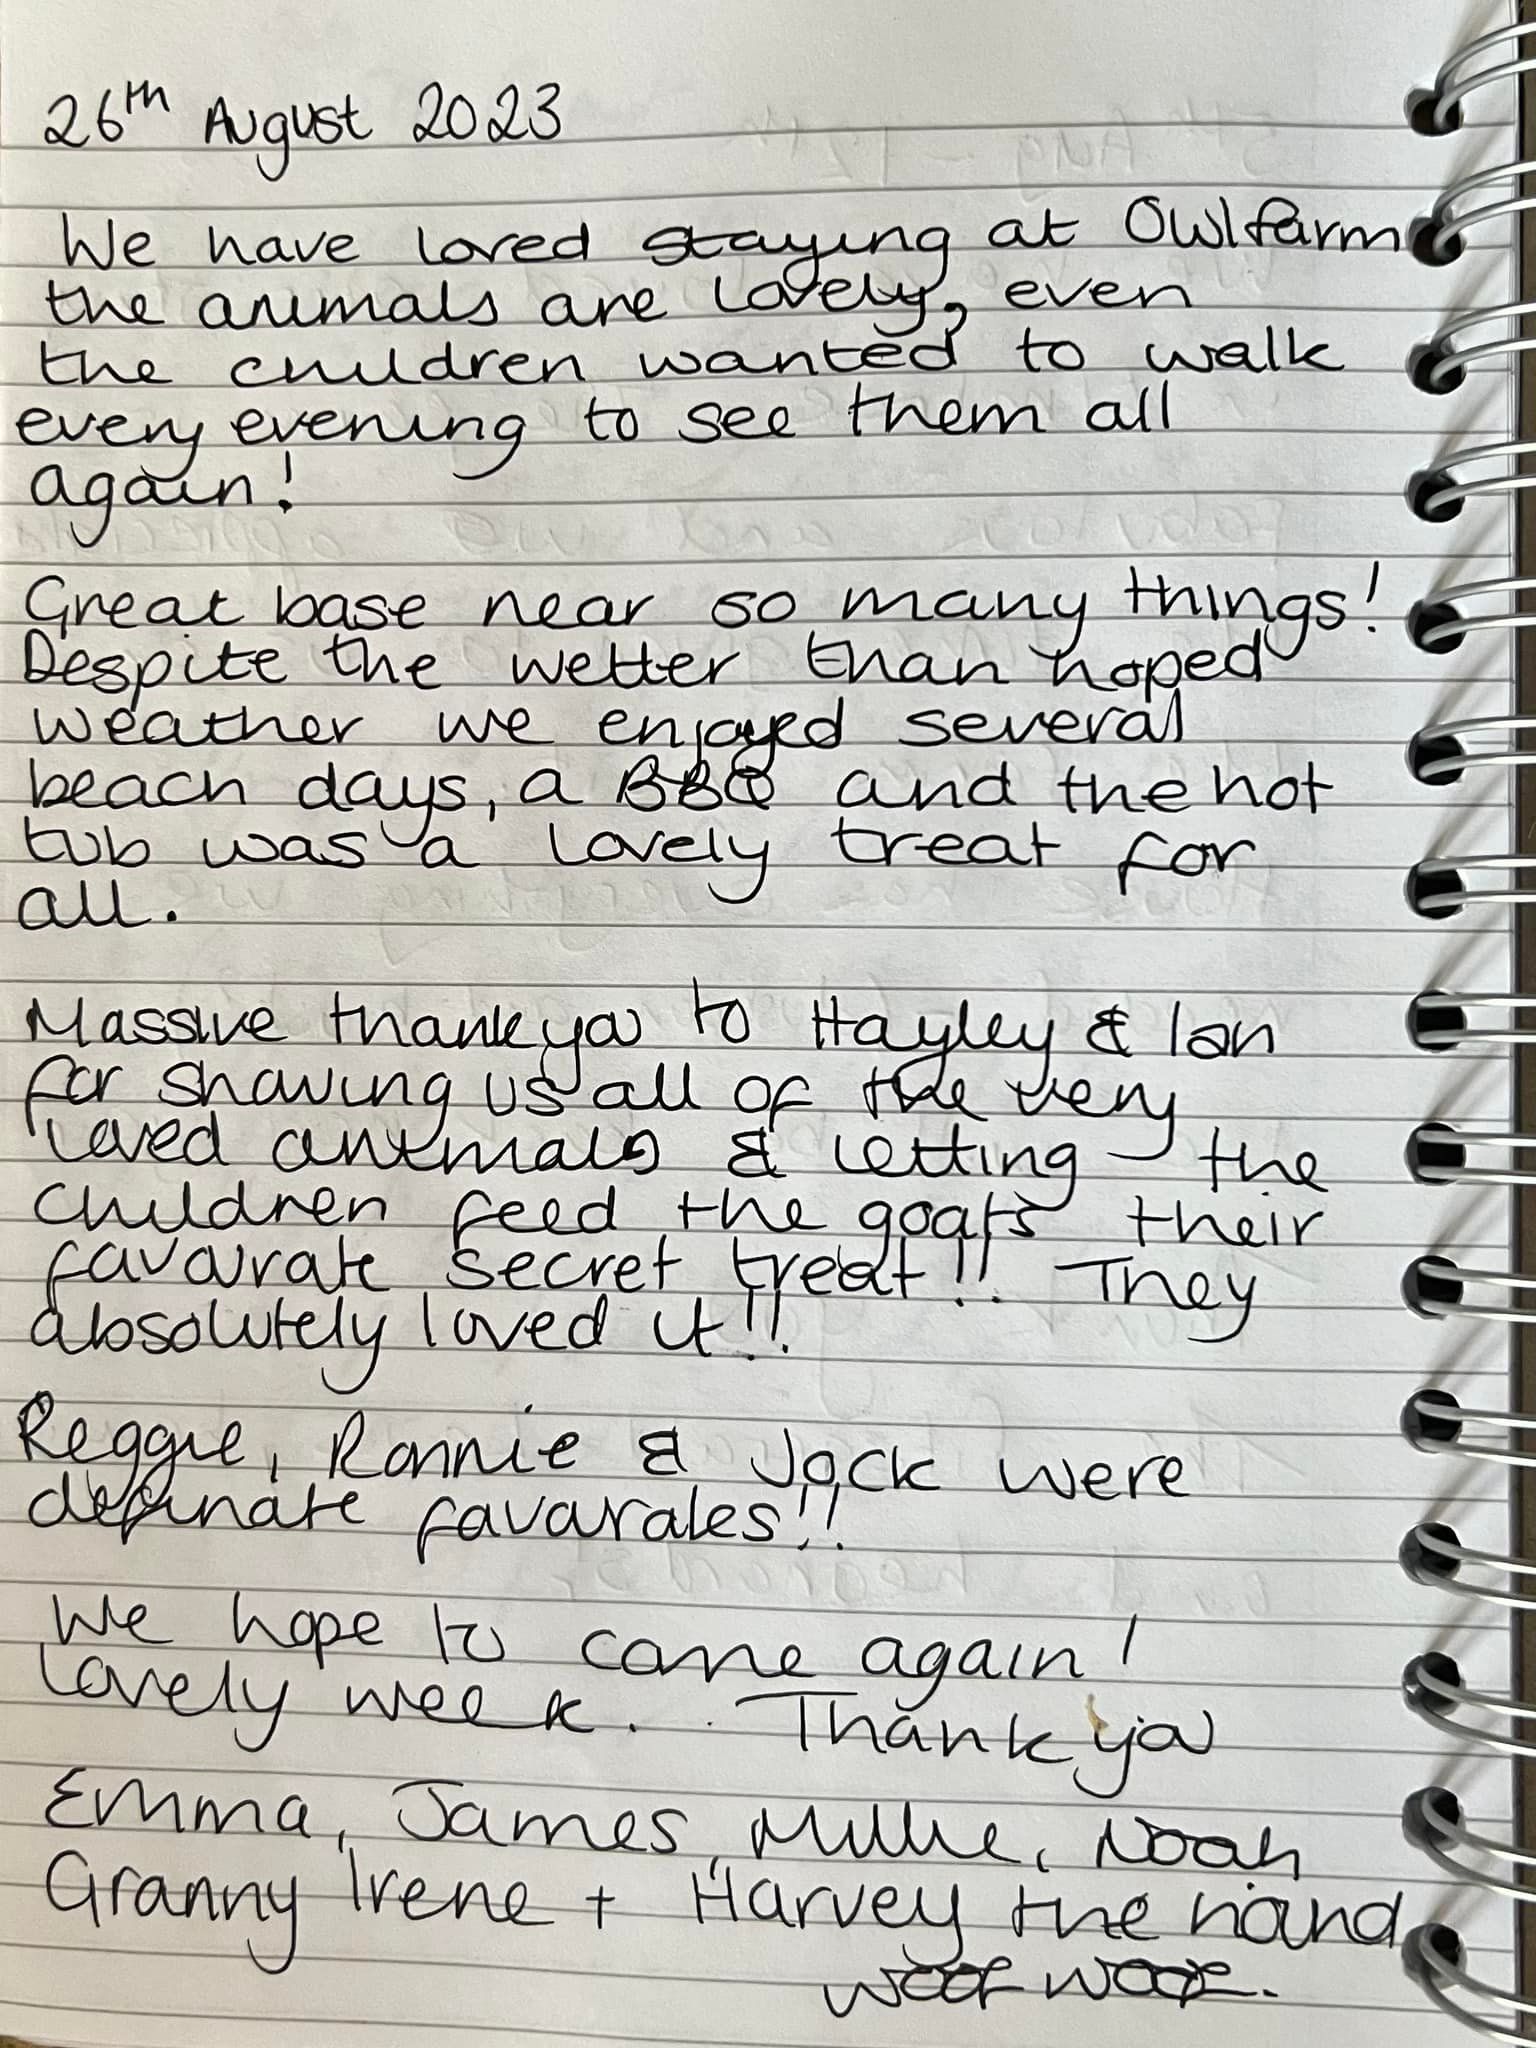 26th August 2023
We have loved staying at Owlfarm
the animals are lovely, even
the children wanted to walk
every evening to see them all
again!
Great base near so many things!
Despite the wetter than hoped
weather we enjoyed several
beach days, a BBQ and the hot
tub was a lovely treat for
all.
Massive thankyou to Hayley & Ian
for showing us all of the very
loved animals & letting the
children feed the goats their
favourate secret treat!! They
absolutely loved it!!
Reggie, Ronnie & Jock were
definate favourates!!
We hope to come again!
Lovely week. Thank you
Emma, James, Millie, Noah
Granny Irene + Harvey the hound
woof woof.